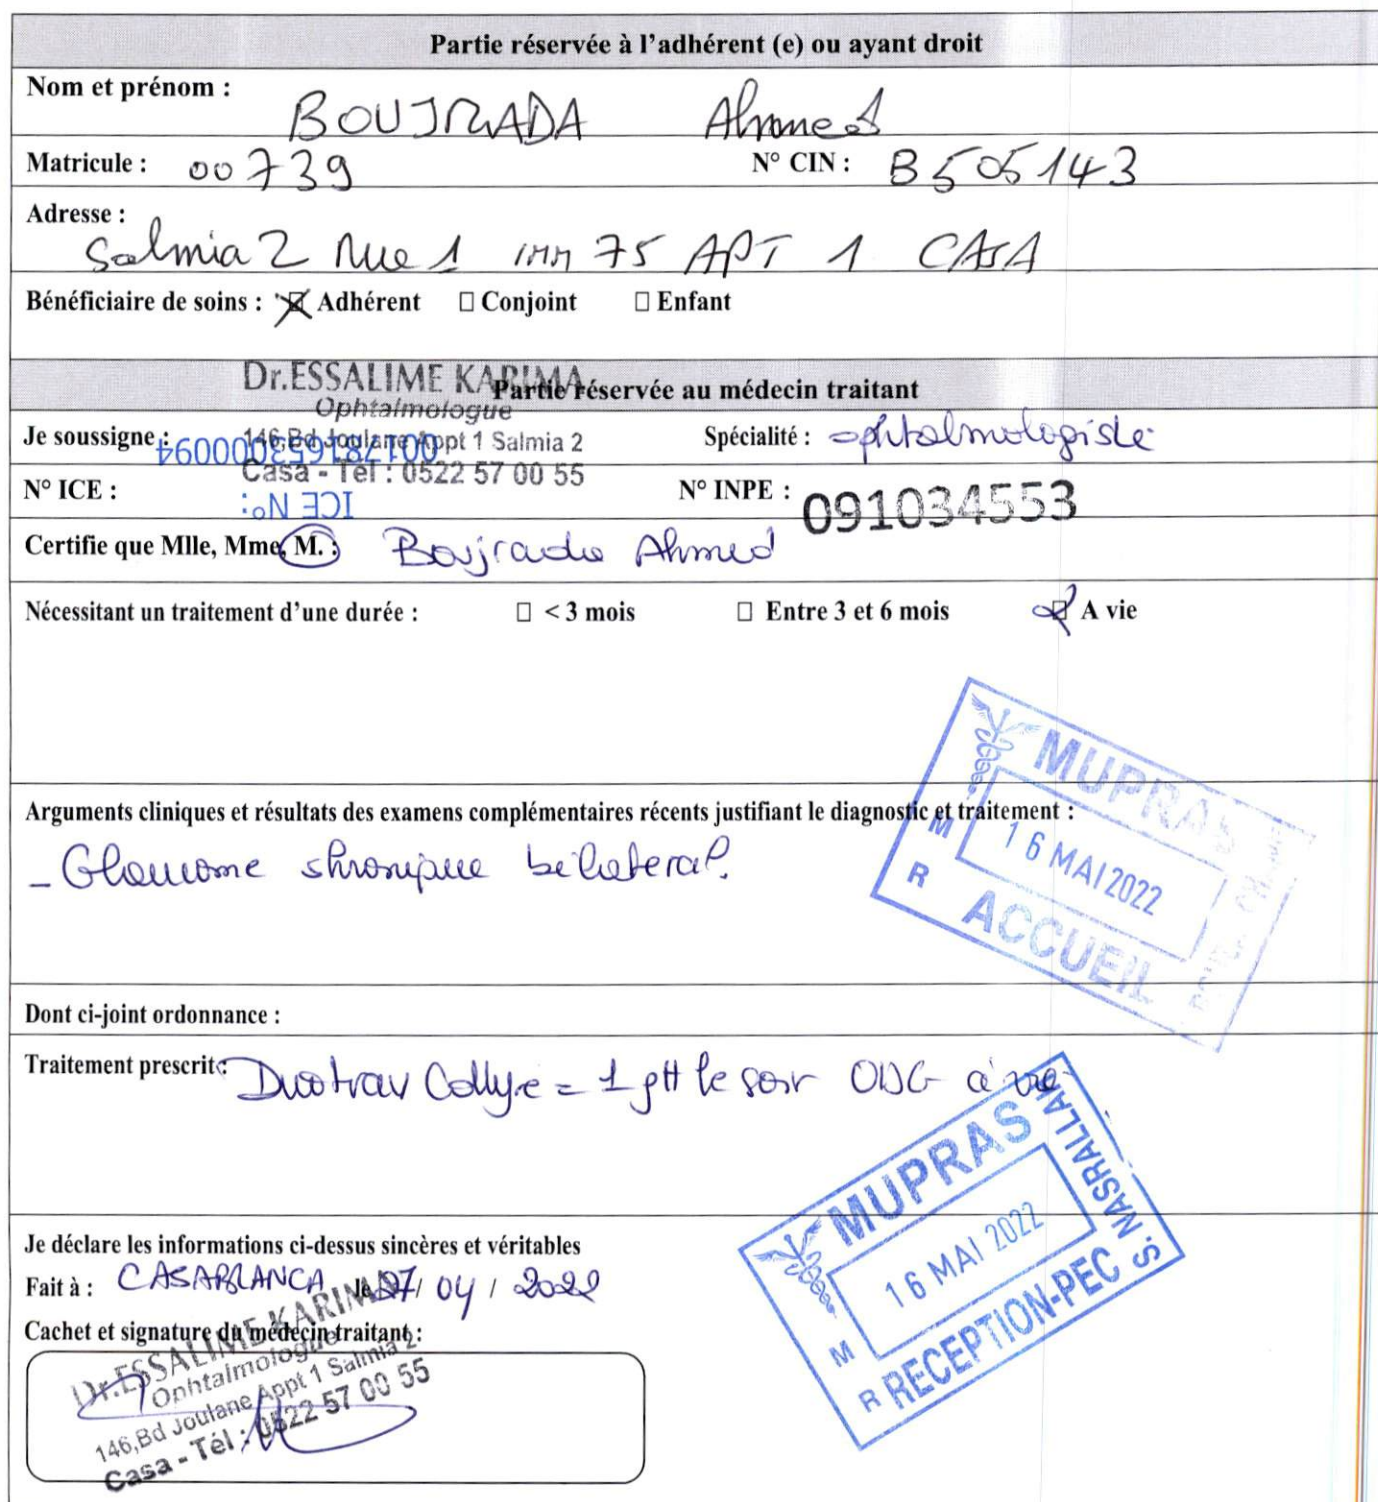 Partie réservée à l'adhérent (e) ou ayant droit
Nom et prénom : BOUJRADA Ahmed
Matricule : 00739 N° CIN : B505143
Adresse :
Salmia 2 Rue 1 imm 75 APT 1 CASA
Bénéficiaire de soins : ☒ Adhérent □ Conjoint □ Enfant
Dr.ESSALIME KARIMA
Partie réservée au médecin traitant
Ophtalmologue
Je soussigne : 146,Bd Joulane Appt 1 Salmia 2 Spécialité : ophtalmologiste
001781653000094
Casa - Tél : 0522 57 00 55
N° ICE : ICE N°: N° INPE : 091034553
Certifie que Mlle, Mme, M. : Boujrada Ahmed
Nécessitant un traitement d'une durée : □ < 3 mois □ Entre 3 et 6 mois ☒ A vie
Arguments cliniques et résultats des examens complémentaires récents justifiant le diagnostic et traitement :
- Glaucome chronique bilateral.
MUPRAS
16 MAI 2022
M R
ACCUEIL
Dont ci-joint ordonnance :
Traitement prescrit : Duotrav Collyre = 1 gtt le soir ODG à vie
MUPRAS
16 MAI 2022
M R
RECEPTION-PEC
S. NASRALLAH
Je déclare les informations ci-dessus sincères et véritables
Fait à : CASABLANCA le 27/ 04 / 2022
Cachet et signature du médecin traitant :
Dr.ESSALIME KARIMA
Ophtalmologue
146,Bd Joulane Appt 1 Salmia 2
Casa - Tél : 0522 57 00 55